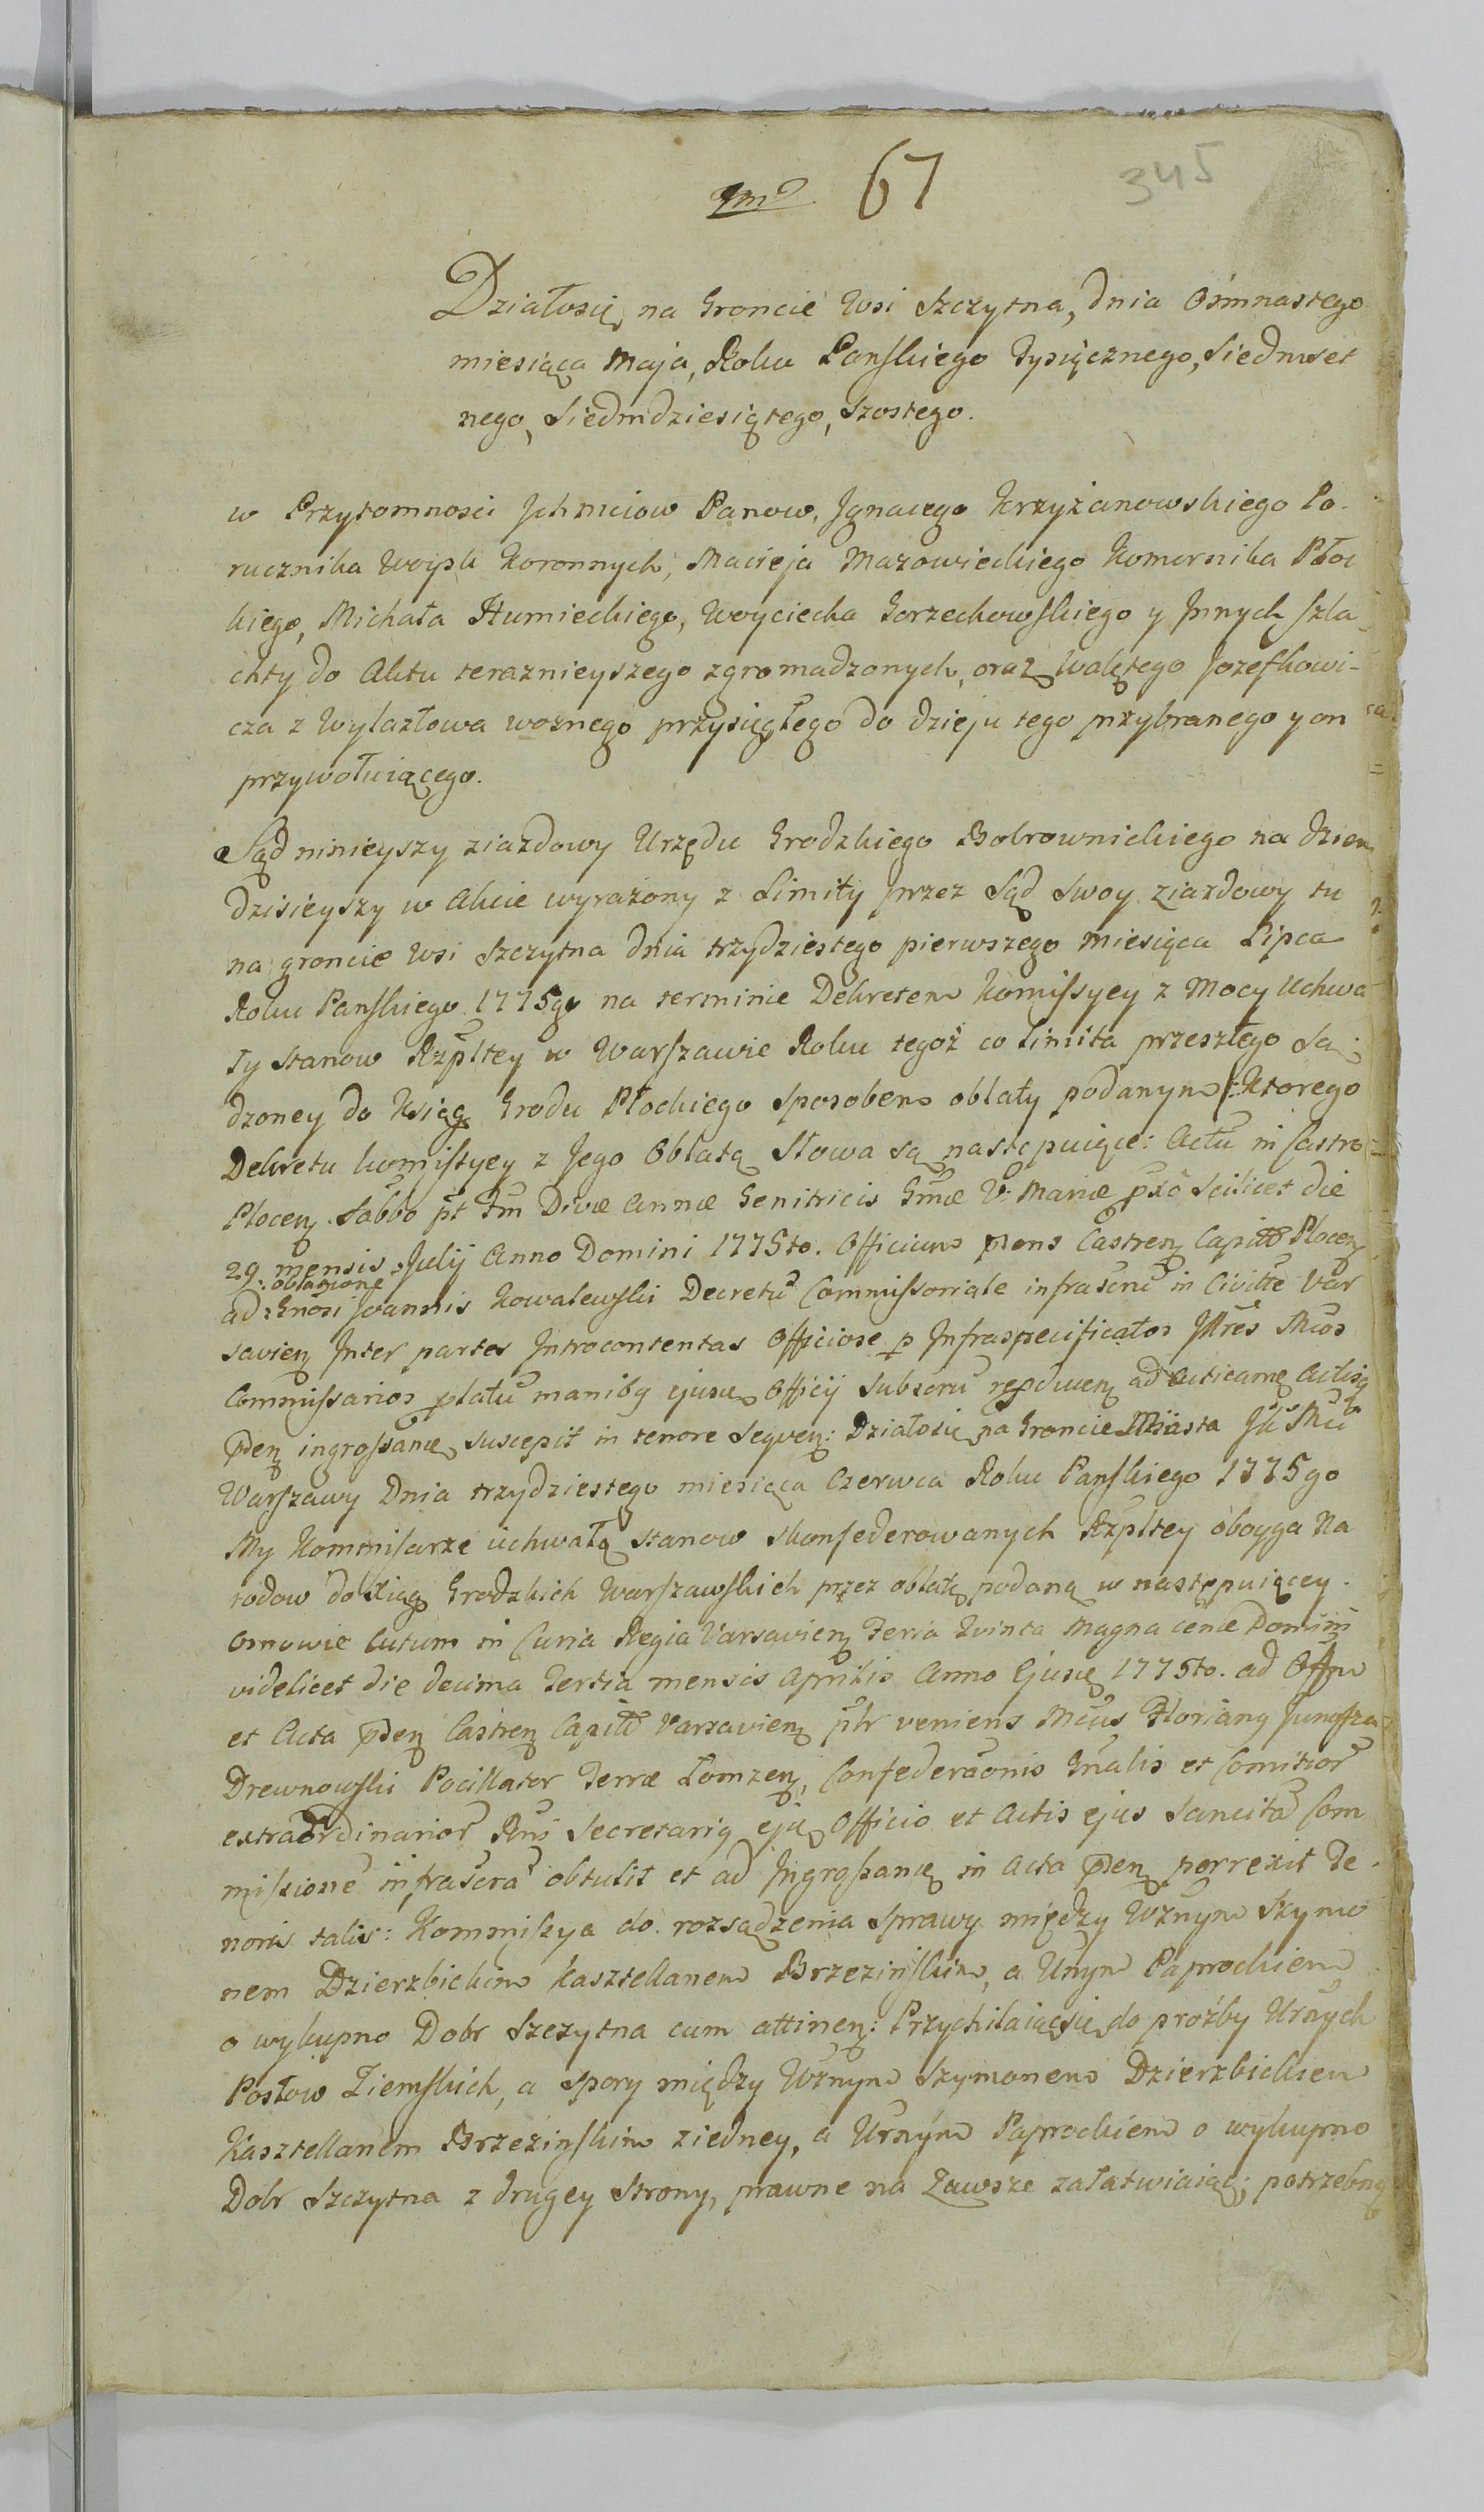 1mo 67 345
Działosię na Groncie Wsi Szczytna, dnia Osmnastego
miesiąca Maja, Roku Panskiego Tysiącznego, Siedmset
nego, Siedmdziesiątego, Szostego.
w Przytomnosci Jchmciow Panow, Jgnacego Krzyżanowskiego Po-
rucznika Woysk Koronnych, Macieja Mazowieckiego Komornika Płoc
kiego, Michała Humieckiego, Woyciecha Gorzechowskiego y Jnnych szla-
chty do Aktu teraznieyszego zgromadzonych, oraz Walętego Jozefkowi-
cza z Wylazłowa woznego przysięgłego do dzieju tego przybranego y on
przywołuiącego.
Sąd ninieyszy ziazdowy Urzędu Grodzkiego Bobrownickiego na dzien
dzisieyszy w Akcie wyrażony z Limity przez Sąd Swoy ziazdowy tu
na groncie wsi Szczytna dnia trzydziestego pierwszego miesiąca Lipca
Roku Panskiego 1775go na terminie Dekretem Komissyey z Mocy Uchwa
ły Stanow Rzpltey w Warszawie Roku tegoż co Limita przeszłego Są-
dzoney do Ksiąg Grodu Płockiego Sposobem oblaty podanym /: Ktorego
Dekretu komissyey z Jego Oblatą Słowa są następuiące: Actu in Castro
Plocen. Sabbo pt Fm Divæ Annæ Genitricis Gmæ V. Mariæ pxo Scilicet die
29 mensis Julij Anno Domini 1775to. Officium pens Castren Capitt Plocen
ad: oblatione Gnosi Joannis Kowalewski Decretu Commissoriale infrascru in Civitte Var
savien Jnter partes Jntrocontentas Officiose p Jnfraspecificatos Jllres Mcos
Commissarios platu manibq ejusu Officij Subscru repduen ad Acticame Actisq
pden ingrossame suscepit in tenore Sequen: Działosię na Groncie Miasta JK Mci
Warszawy Dnia trzydziestego miesiąca Czerwca Roku Panskiego 1775go
My Kommisarze uchwałą Stanow Skonfederowanych Rzpltey oboyga Na
rodow do Xiąg Grodzkich Warszawskich przez oblatę podaną w następuiącey
osnowie Actum in Curia Regia Varsavien Feria Qvinta Magna cenæ Domini
videlicet die decima tertia mensis Aprilis Anno Ejusu 1775to. ad Offm
et Acta pden Castren Capitt Varsavien plr veniens Mcus Florianq Junosza
Drewnowski Pocillator Terræ Łomzen, Confederaonis Gnalis et Comitior
extraordinarior Rni Secretariq ejq Officio et Actis ejus Sancita Com
missione infrascra obtulit et ad Jngrossane in Acta pden porrexit Te-
noris talis: Kommissya do rozsądzenia Sprawy między Wznym Szymo
nem Dzierzbickim Kasztellanem Brzezinskim, a Urnym Paprockiem
o wykupno Dobr Szczytna cum attinen: Przychilaiącsię do prożby Urnych
Posłow Ziemskich, a Spory między Wznym Szymonem Dzierzbickiem
Kasztellanem Brzezinskim ziedney, a Urnym Paprockiem o wykupno
Dobr Szczytna z drugey Strony, prawne na Zawsze załatwiaiąc; potrzebną